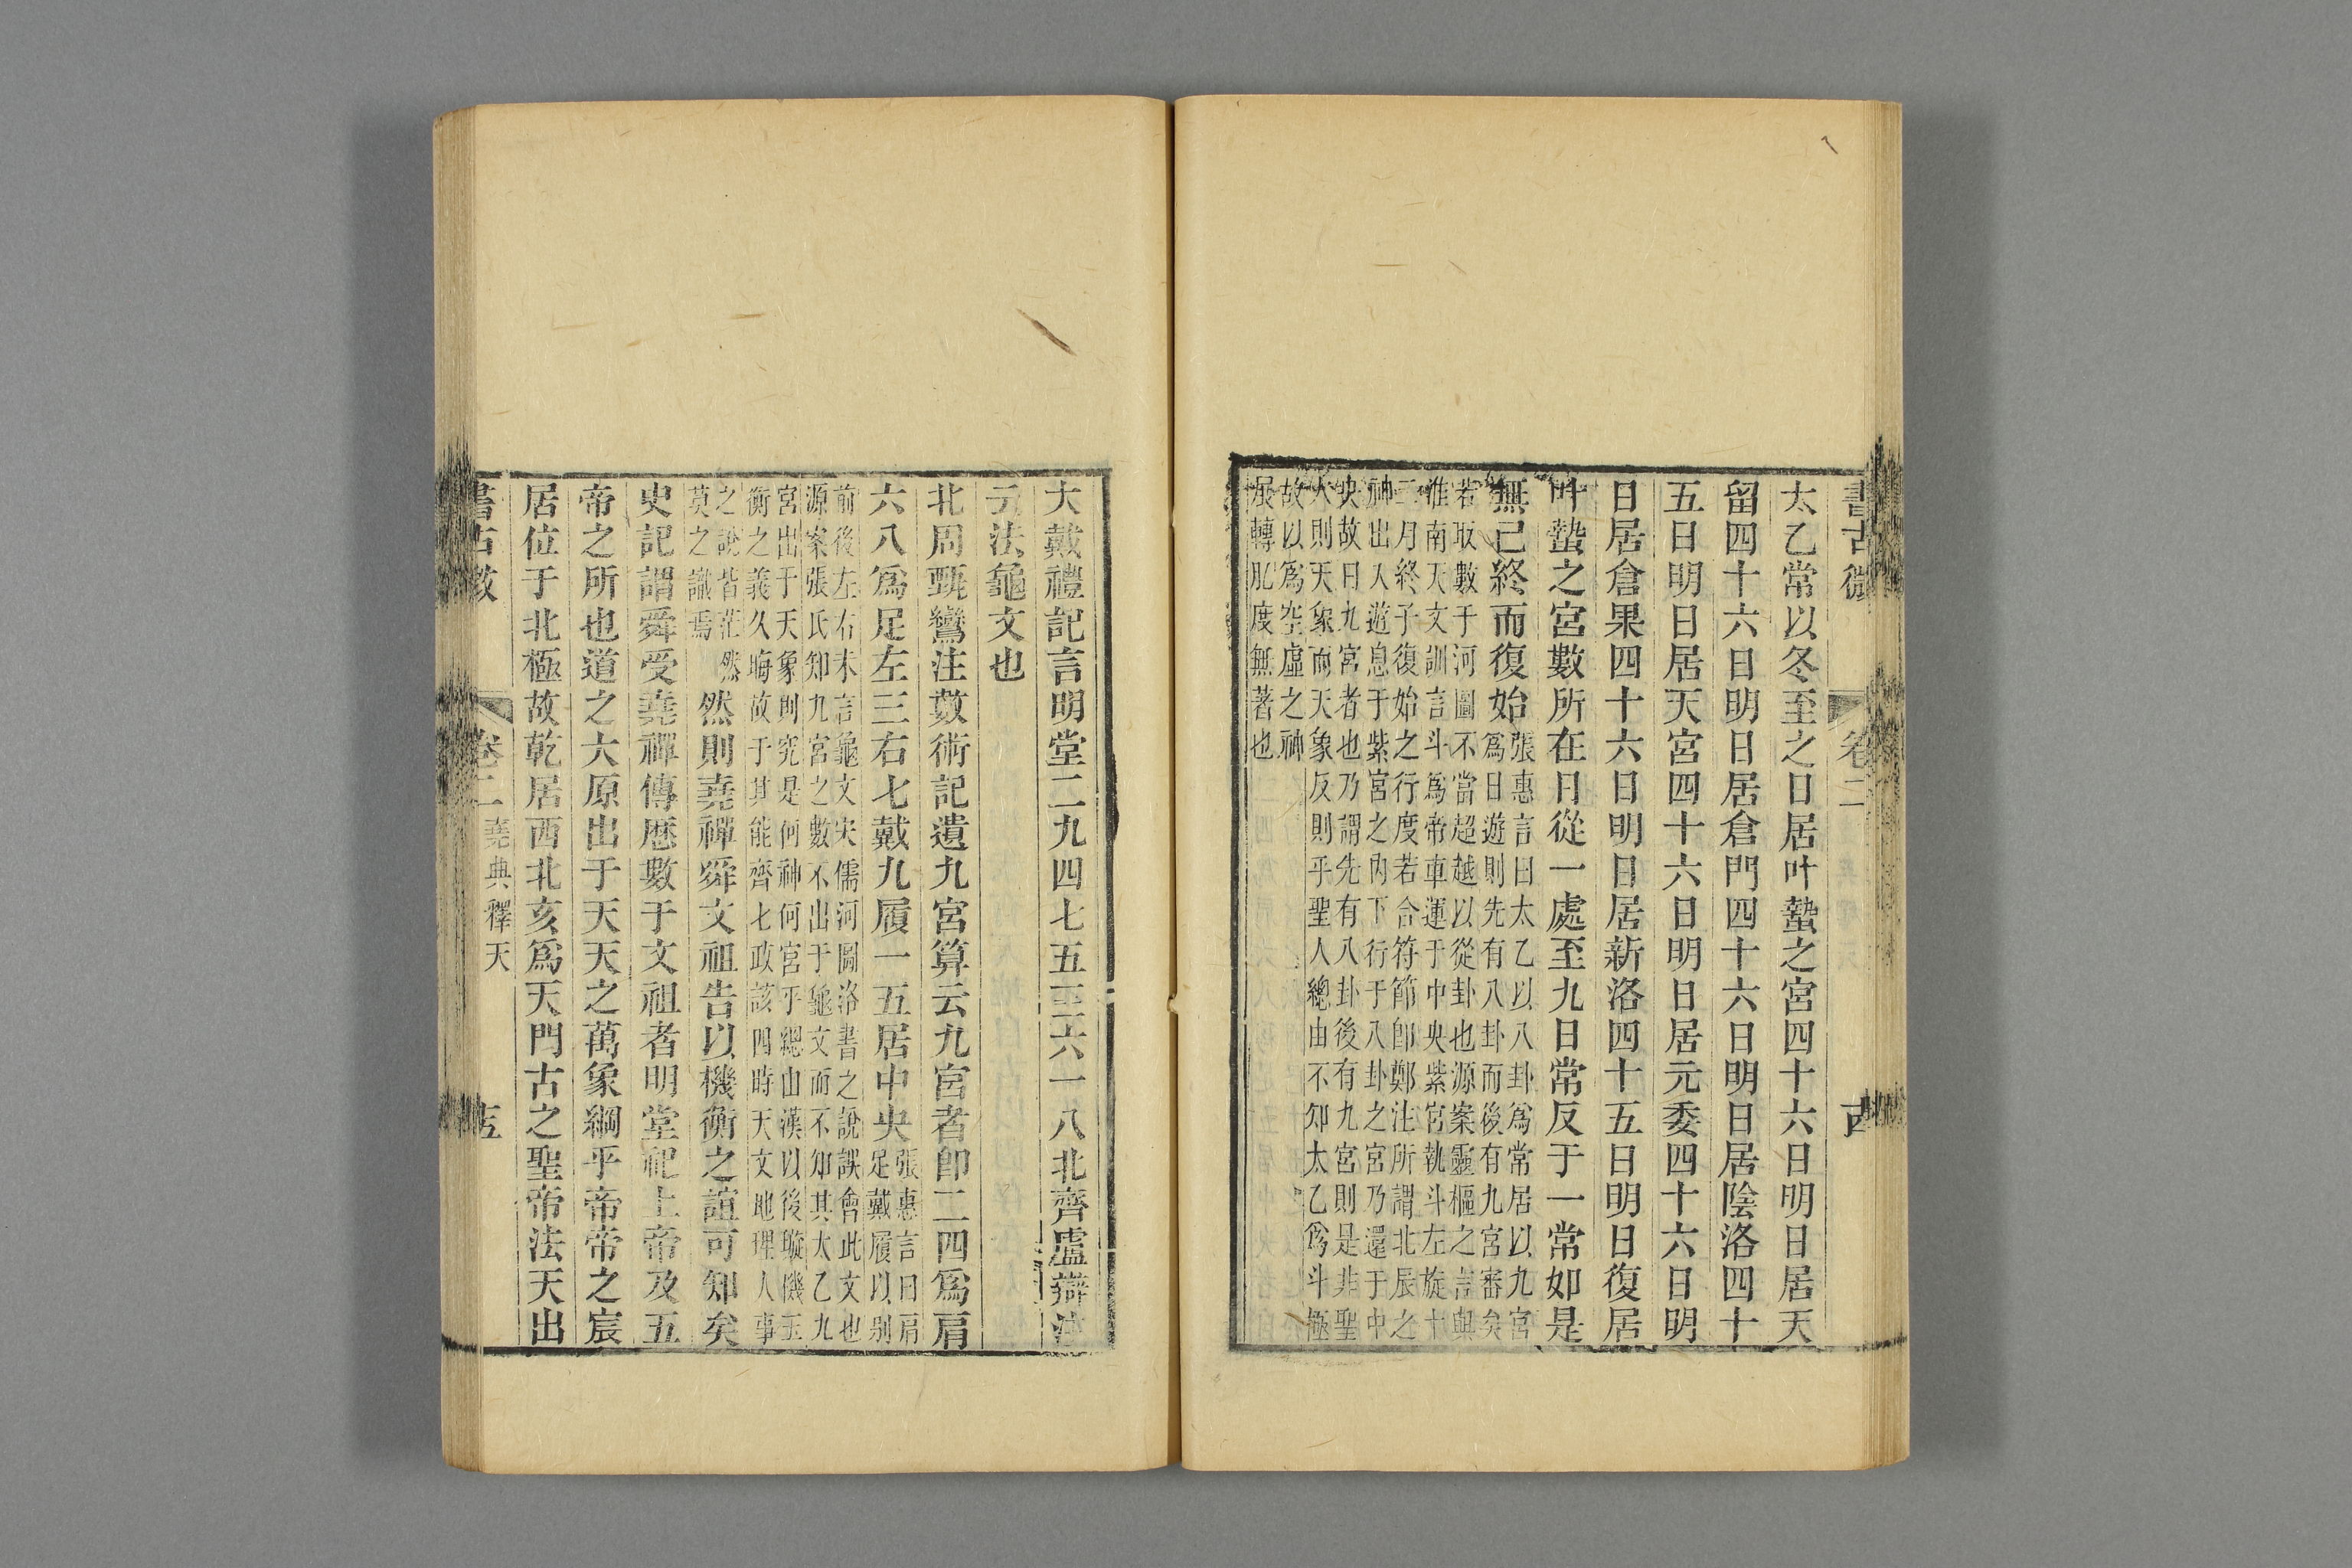 書古微 卷二
太乙常以冬至之日居叶蟄之宮四十六日明日居天
留四十六日明日居倉門四十六日明日居陰洛四十
五日明日居天宮四十六日明日居元委四十六日明
日居倉果四十六日明日居新洛四十五日明日復居
叶蟄之宮數所在日從一處至九日常反于一常如是
無已終而復始
張惠言曰太乙以八卦爲常居以九宮
爲日遊則先有八卦而後有九宮審矣
若取數于河圖不當超越以從卦也源案靈樞之言與
淮南天文訓言斗爲帝車運于中央紫宮執斗左旋十
二月終子復始之行度若合符節卽鄭注所謂北辰之
神出入遊息于紫宮之內下行于八卦之宮乃還于中
央故曰九宮者也乃謂先有八卦後有九宮則是非聖
人則天象而天象反則乎聖人總由不知太乙爲斗極
故以爲空虛之神
展轉肊度無著也
大戴禮記言明堂二九四七五三六一八北齊盧辯注
云法龜文也
北周甄鸞注數術記遺九宮算云九宮者卽二四爲肩
六八爲足左三右七戴九履一五居中央
張惠言曰肩
足戴履以别
前後左右未言龜文宋儒河圖洛書之說誤會此文也
源案張氏知九宮之數不出于龜文而不知其太乙九
宮出于天象則究是何神何宮乎總由漢以後璇機玉
衡之義久晦故于其能齊七政該四時天文地理人事
之說皆茫然
莫之識焉
然則堯禪舜文祖告以機衡之誼可知矣
史記謂舜受堯禪傳歷數于文祖者明堂祀上帝及五
帝之所也道之大原出于天天之萬象綱乎帝帝之宸
居位于北極故乾居西北亥爲天門古之聖帝法天出
卷二 堯典釋天